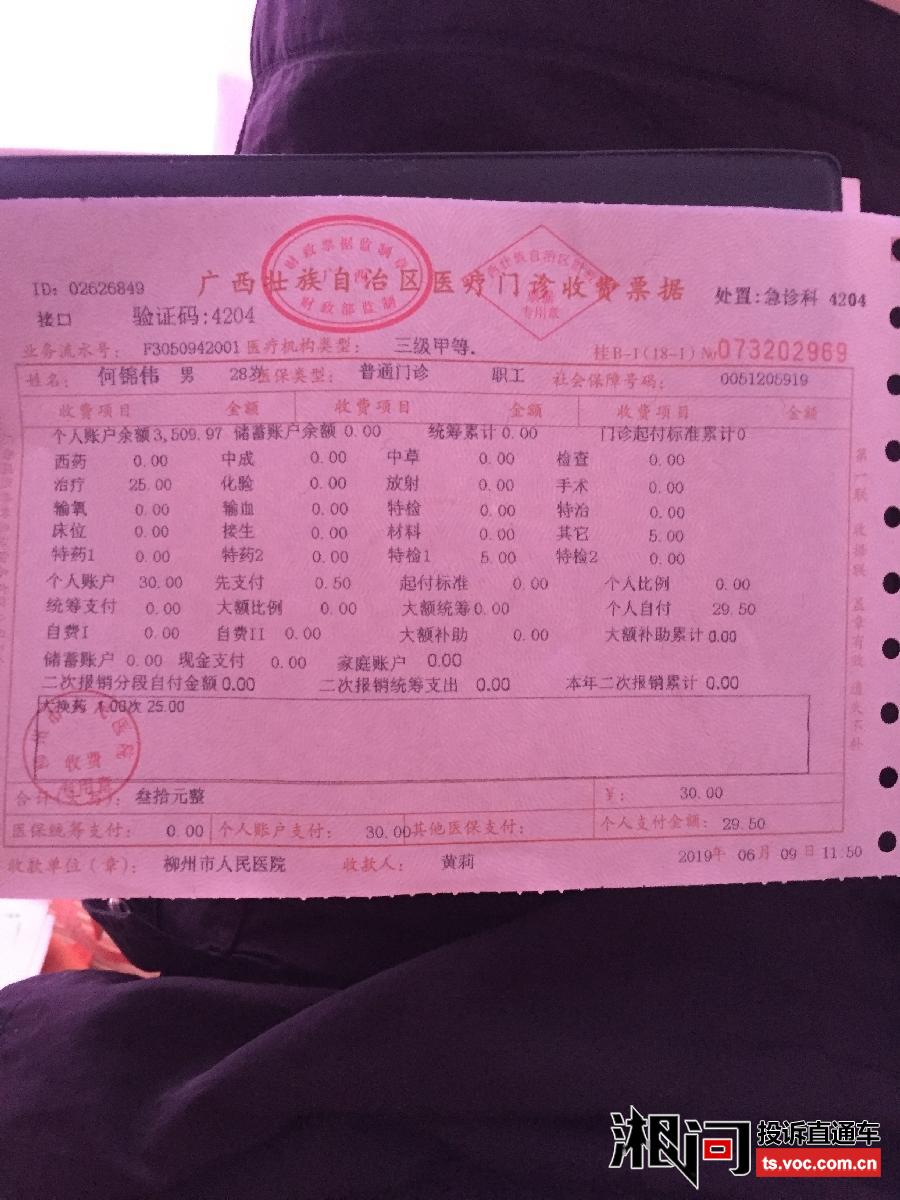 财政票据监制章
广西
财政部监制
广西壮族自治区医疗门诊收费票据
ID: 02626849
处置:急诊科 4204
接口 验证码:4204
专用章
业务流水号: F3050942001 医疗机构类型: 三级甲等. 桂B-1(18-1) № 073202969
姓名: 何锦伟 男 28岁 医保类型: 普通门诊 职工 社会保障号码: 0051205919
收费项目 金额 收费项目 金额 收费项目 金额
个人账户余额3,509.97 储蓄账户余额 0.00 统筹累计0.00 门诊起付标准累计0
西药 0.00 中成 0.00 中草 0.00 检查 0.00
治疗 25.00 化验 0.00 放射 0.00 手术 0.00
输氧 0.00 输血 0.00 特检 0.00 特治 0.00
床位 0.00 接生 0.00 材料 0.00 其它 5.00
特药1 0.00 特药2 0.00 特检1 5.00 特检2 0.00
个人账户 30.00 先支付 0.50 起付标准 0.00 个人比例 0.00
统筹支付 0.00 大额比例 0.00 大额统筹0.00 个人自付 29.50
自费I 0.00 自费II 0.00 大额补助 0.00 大额补助累计0.00
储蓄账户 0.00 现金支付 0.00 家庭账户 0.00
二次报销分段自付金额0.00 二次报销统筹支出 0.00 本年二次报销累计 0.00
大换药 1.00次 25.00
收费
合计(大写): 叁拾元整 ¥: 30.00
医保统筹支付: 0.00 个人账户支付: 30.00 其他医保支付: 个人支付金额: 29.50
收款单位(章): 柳州市人民医院 收款人: 黄莉 2019年 06月 09日 11:50
第一联 收据联 盖章有效 遗失不补
湘问 投诉直通车
ts.voc.com.cn